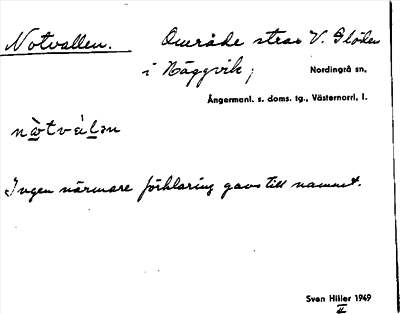 Notvallen. Område strax V. Flöden
i Näggvik, Nordingrå sn,
Ångermanl. s. doms. tg., Västernorrl, l.
nὼtválən
Ingen närmare förklaring gavs till namnet.
Sven Hiller 1949
II